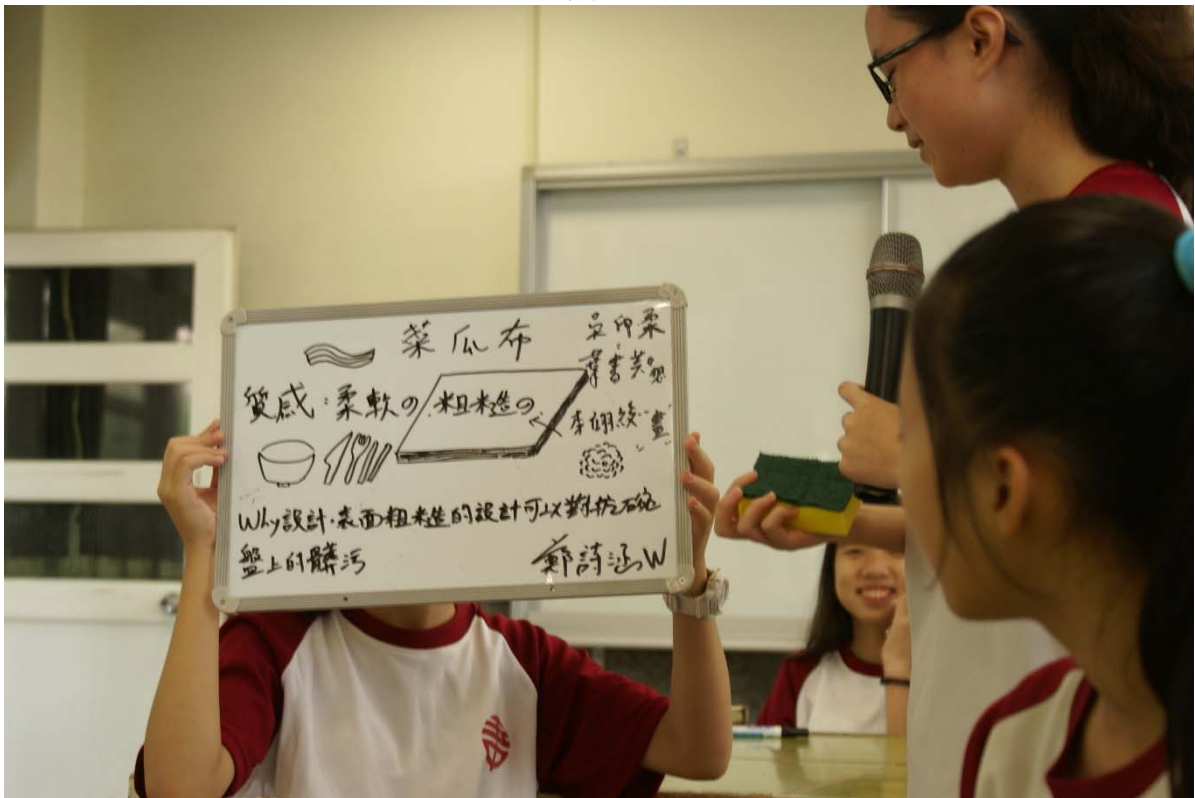 菜瓜布
吳印柔
質感：柔軟の 粗糙の
李翊綾"畫"
Why設計：表面粗糙的設計可以對抗碗
盤上的髒污
鄭詩涵W